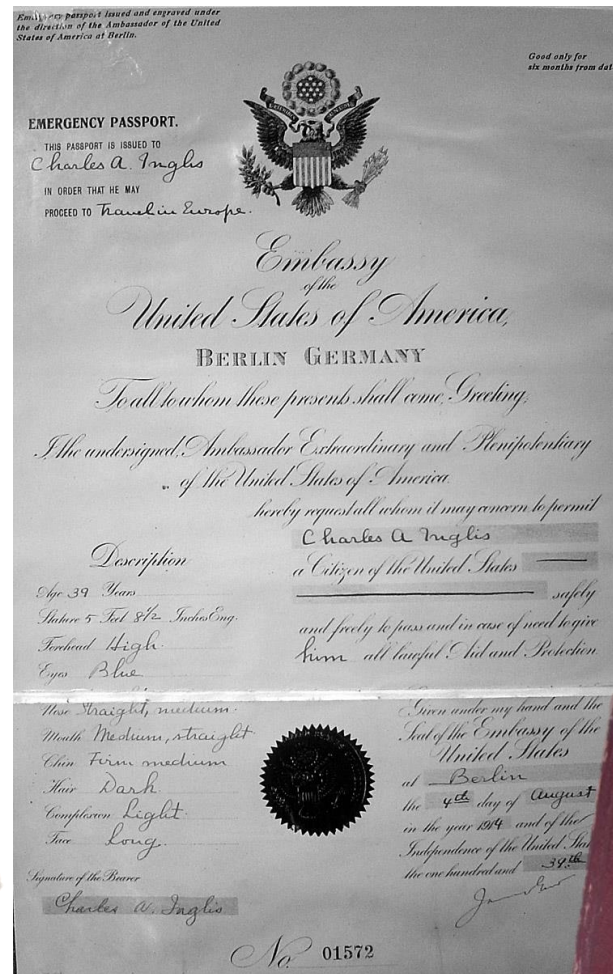 Emergency passport issued and engraved under
the direction of the Ambassador of the United
States of America at Berlin.
Good only for
six months from dat
EMERGENCY PASSPORT.
THIS PASSPORT IS ISSUED TO
Charles A. Inglis
IN ORDER THAT HE MAY
PROCEED TO Travel in Europe.
Embassy
of the
United States of America,
BERLIN GERMANY
To all to whom these presents shall come, Greeting,
I the undersigned, Ambassador Extraordinary and Plenipotentiary
of the United States of America.
hereby request all whom it may concern to permit
Charles A Inglis
a Citizen of the United States
safely
and freely to pass and in case of need to give
him all lawful Aid and Protection
Description
Age 39 Years
Stature 5 Feet 8 1/2 Inches Eng.
Forehead High.
Eyes Blue
Nose Straight, medium.
Mouth Medium, straight
Chin Firm medium
Hair Dark
Complexion Light
Face Long.
Signature of the Bearer
Charles A. Inglis
Given under my hand and the
Seal of the Embassy of the
United States
at Berlin
the 4th day of August
in the year 1914 and of the
Independence of the United Stat
the one hundred and 39th
No. 01572